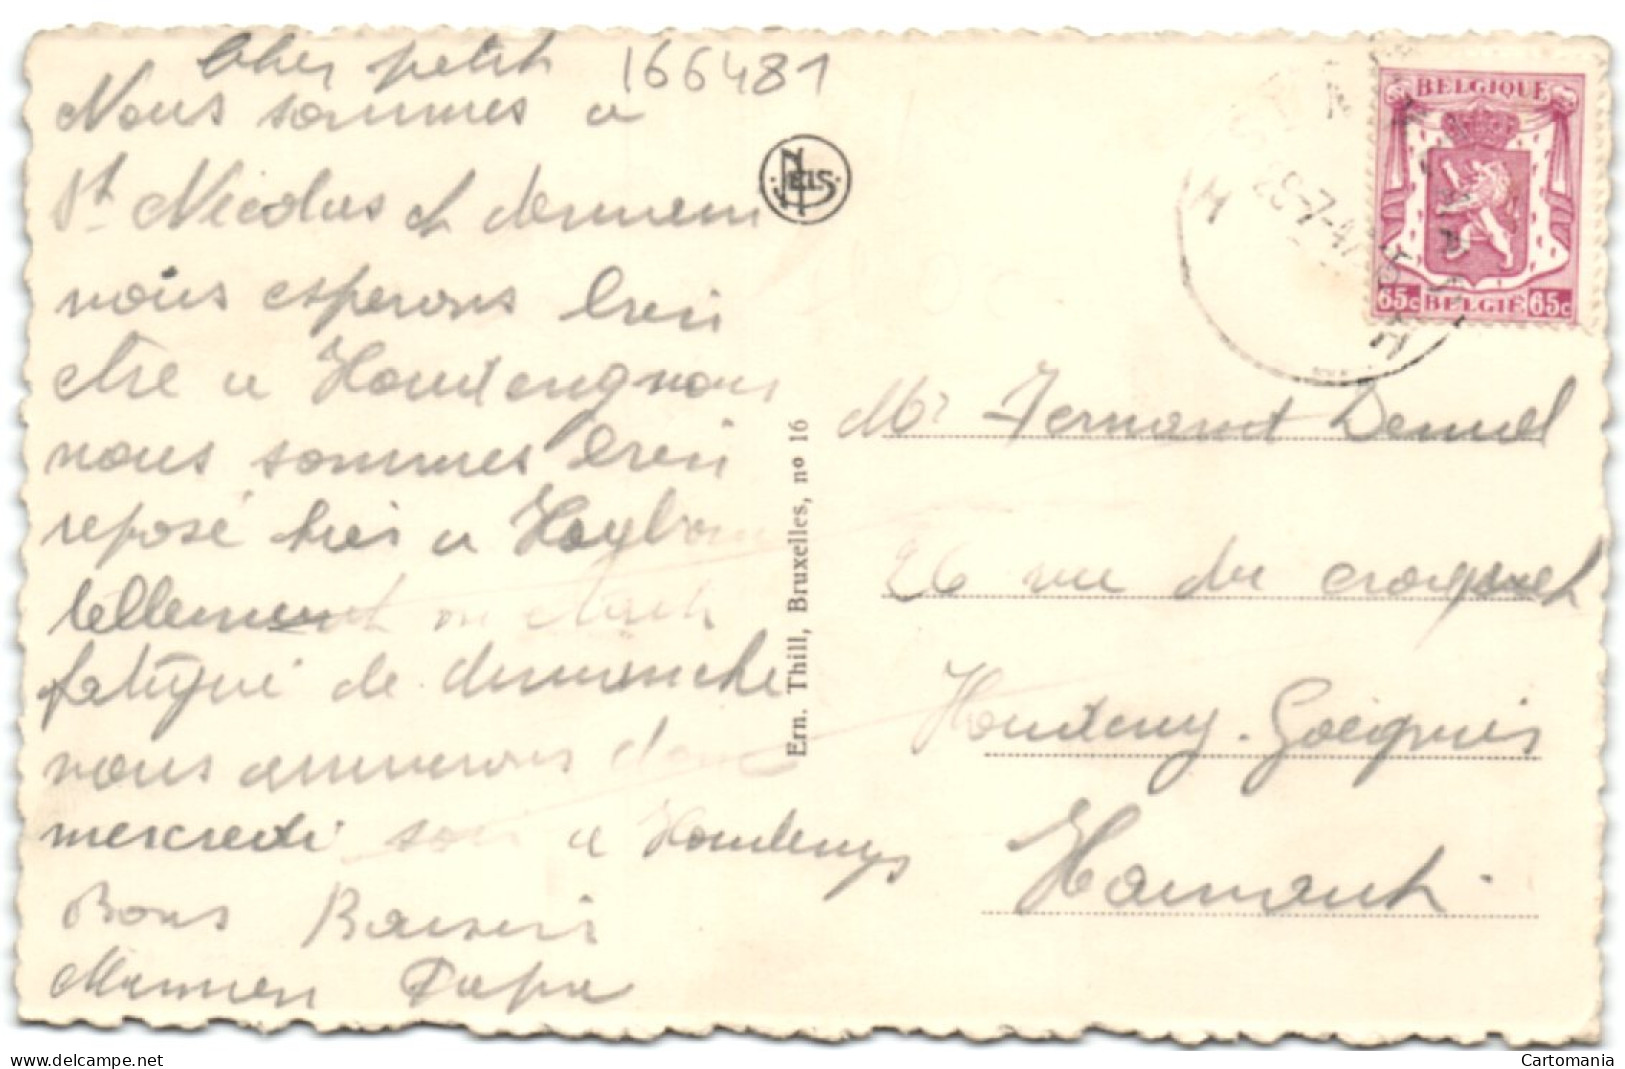 Cher petit
166481
Nous sommes a
St Nicolas et
nous esperons bien
etre a Houdeng
nous sommes bien
reposé hier a
tellement on etait
fatigué de dimanche
nous arriverons donc
mercredi soir a Houdeng
Bons Baisers
Maman Papa
NELS
Ern. Thill, Bruxelles, nº 16
BELGIQUE
65c BELGIË 65c
Mr Fernand
26 rue du croquet
Houdeng-Goégnies
Hainaut.
delcampe.net
Cartomania